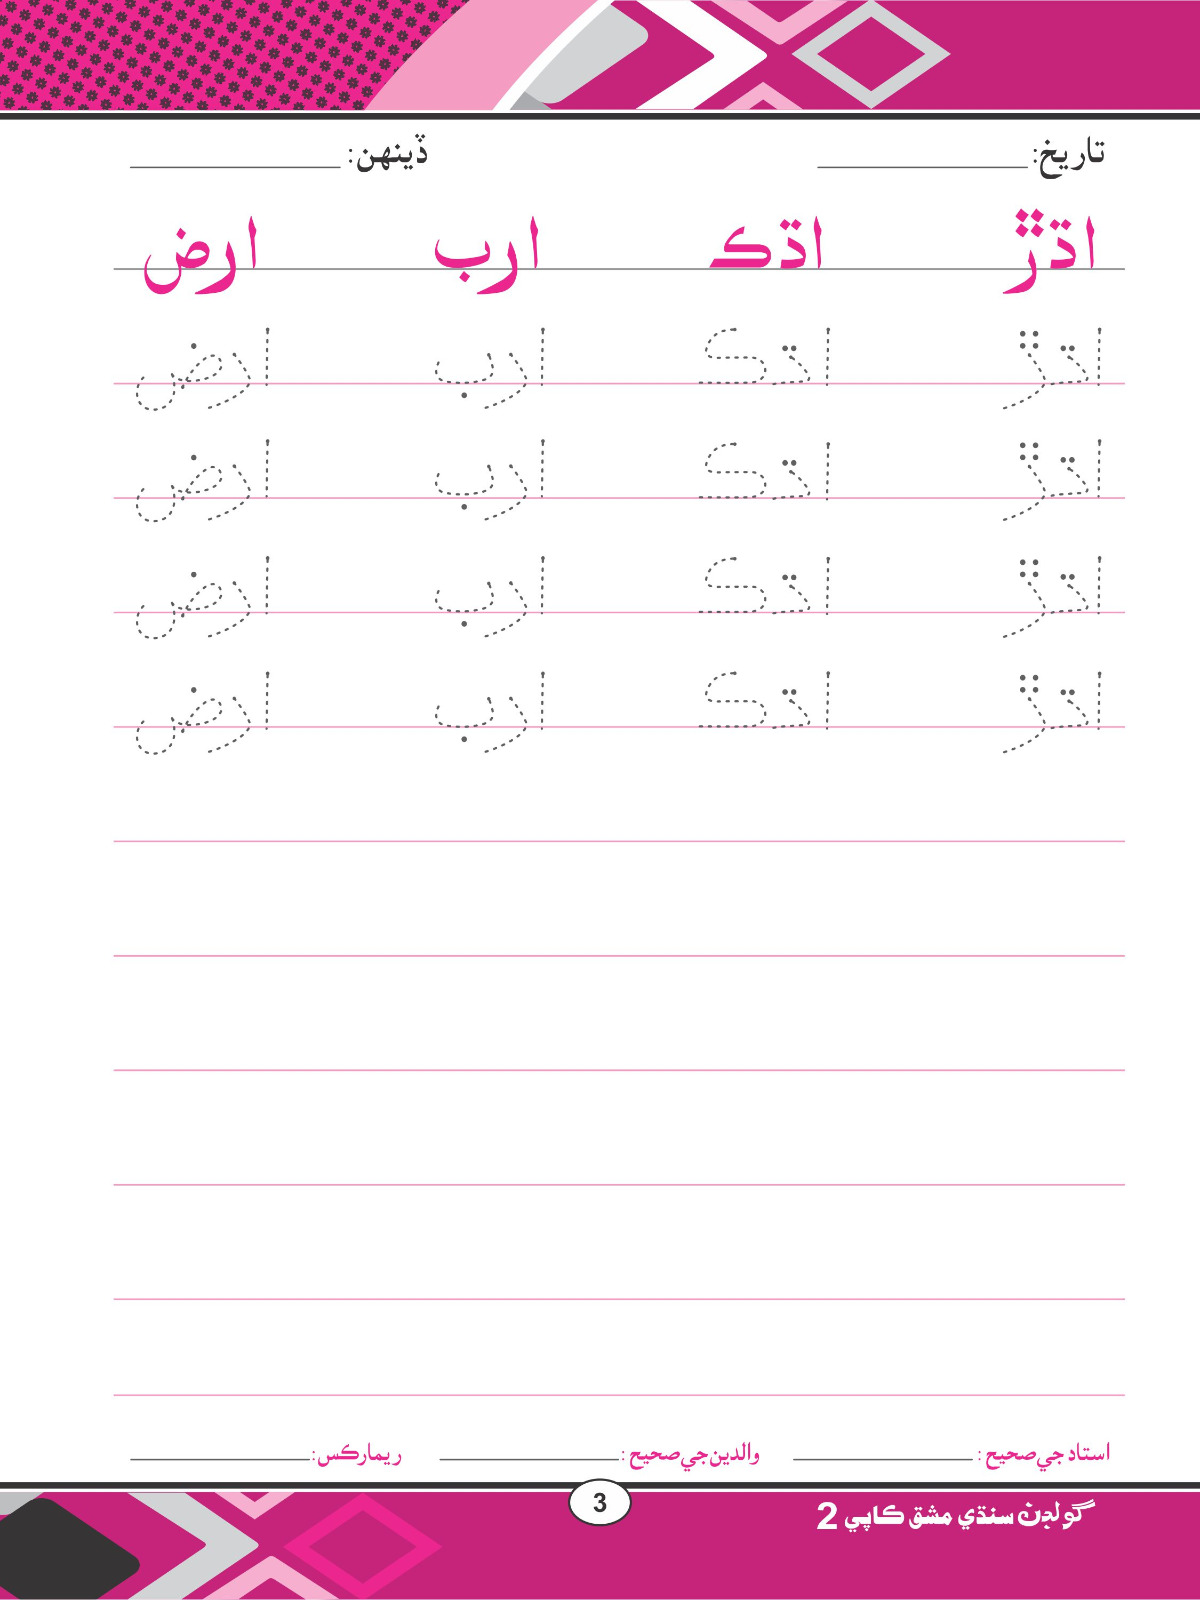 تاريخ: ڏينهن:
اڌڙ اڌڪ ارب ارض
اڌڙ اڌڪ ارب ارض
اڌڙ اڌڪ ارب ارض
اڌڙ اڌڪ ارب ارض
اڌڙ اڌڪ ارب ارض
استاد جي صحيح : والدين جي صحيح : ريمارڪس:
گولڊن سنڌي مشق ڪاپي 2
3